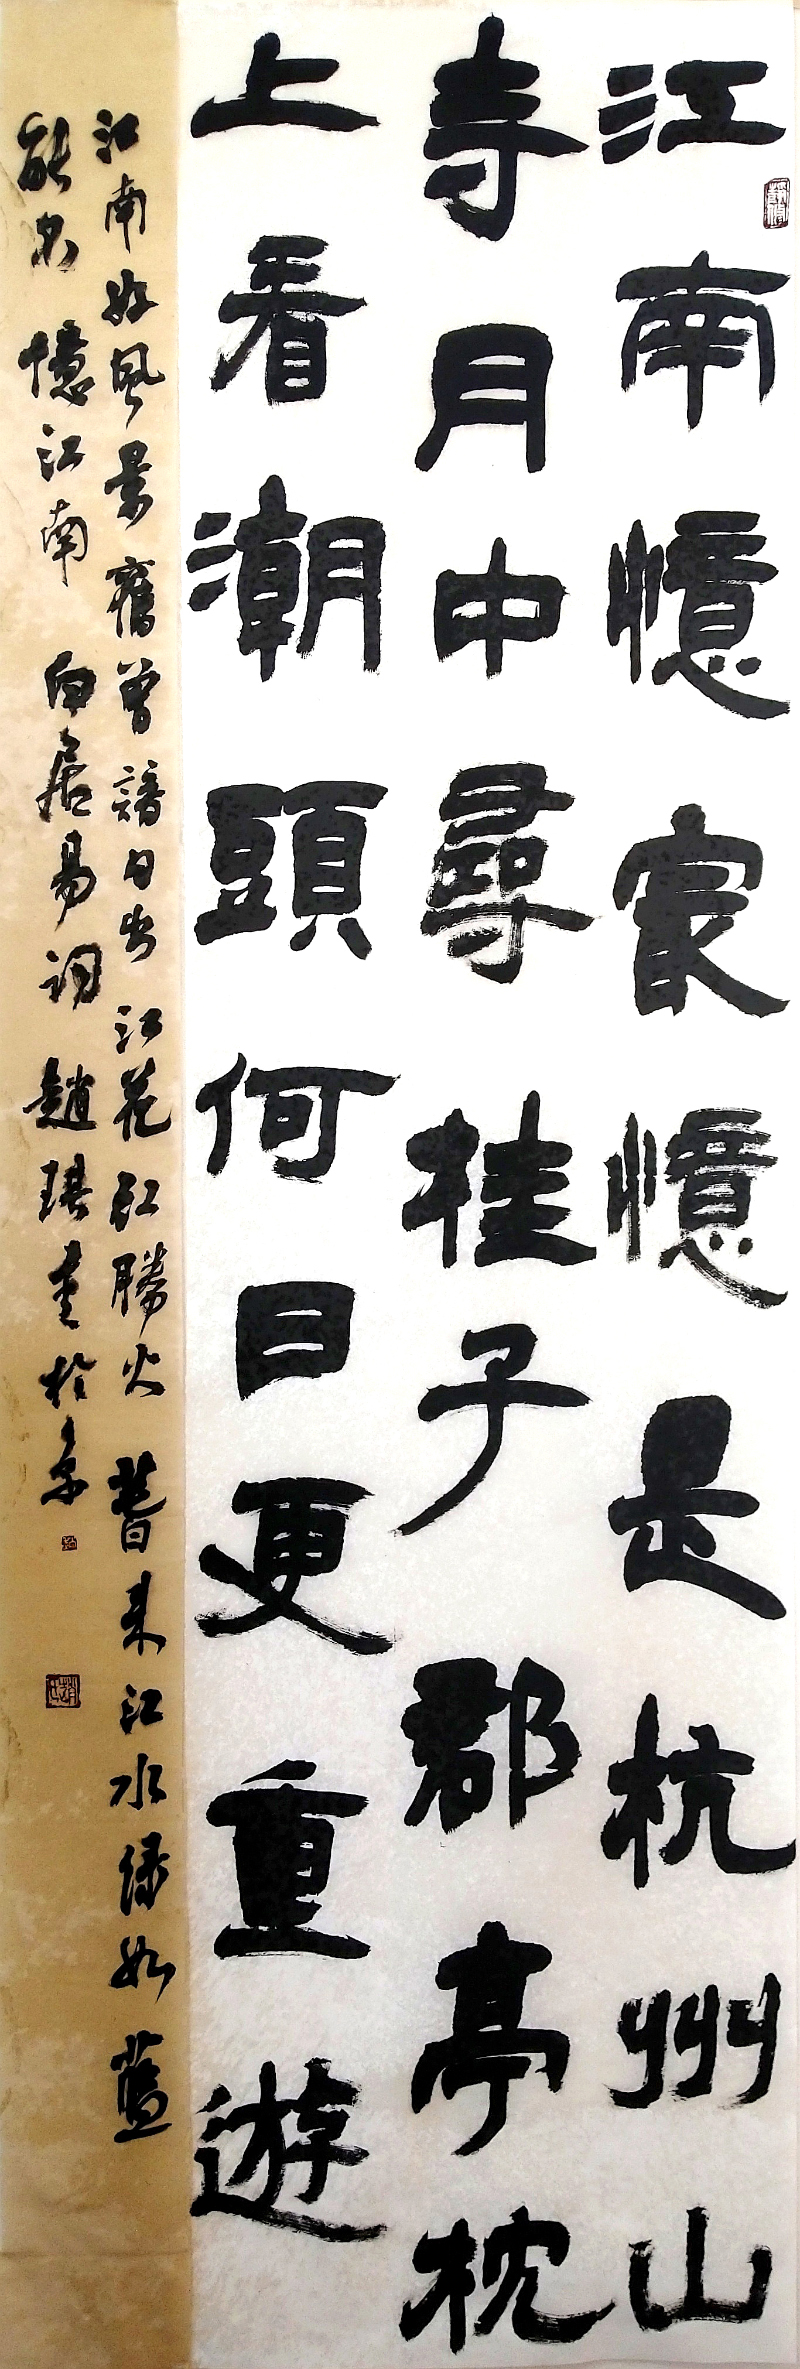 江南憶冣憶是杭州山
寺月中尋桂子郡亭枕
上看潮頭何日更重遊
江南好風景舊曾諳日出江花紅勝火春來江水緑如藍
能不憶江南白居易詞趙琪書於京